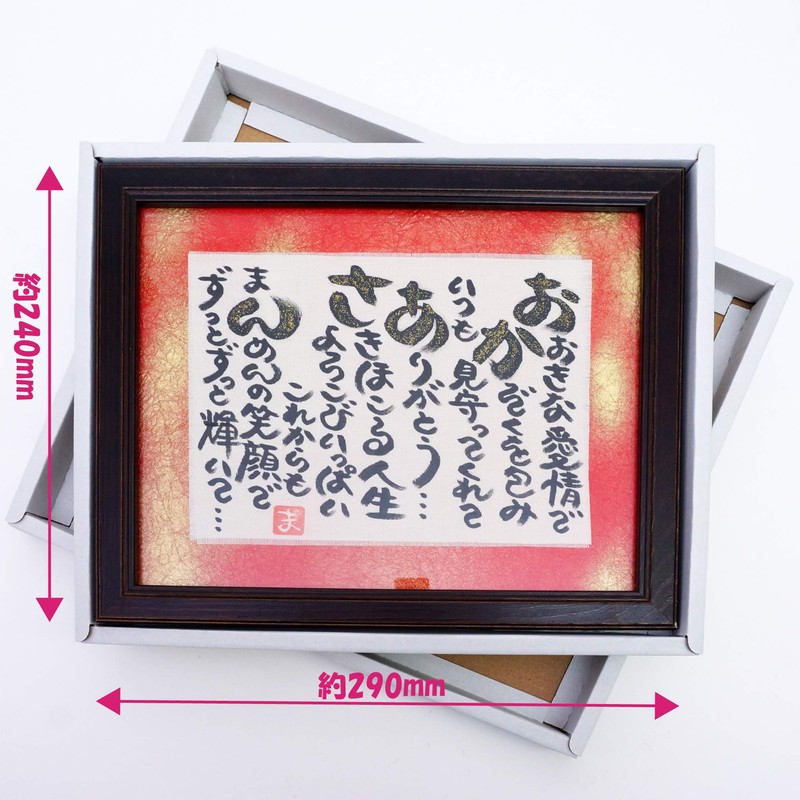 おおきな愛情で
かぞくを包み
いつも見守ってくれて
ありがとう…
さきほこる人生
よろこびいっぱい
これからも
まんめんの笑顔で
ずっとずっと輝いて…
ま
約240mm
約290mm